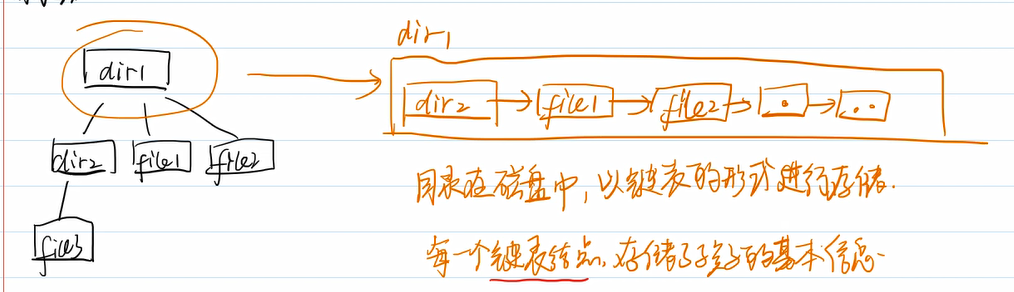 dir1
dir2 file1 file2
file3
dir1
dir2 → file1 → file2 → . → ..
目录在磁盘中,以链表的形式进行存储.
每一个链表结点,存储了孩子的基本信息.